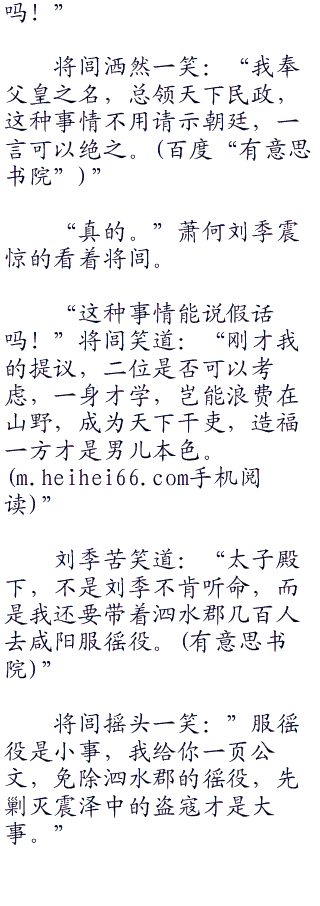 吗！”
将闾洒然一笑：“我奉
父皇之名，总领天下民政，
这种事情不用请示朝廷，一
言可以绝之。(百度“有意思
书院”)”
“真的。”萧何刘季震
惊的看着将闾。
“这种事情能说假话
吗！”将闾笑道：“刚才我
的提议，二位是否可以考
虑，一身才学，岂能浪费在
山野，成为天下干吏，造福
一方才是男儿本色。
(m.heihei66.com手机阅
读)”
刘季苦笑道：“太子殿
下，不是刘季不肯听命，而
是我还要带着泗水郡几百人
去咸阳服徭役。(有意思书
院)”
将闾摇头一笑：”服徭
役是小事，我给你一页公
文，免除泗水郡的徭役，先
剿灭震泽中的盗寇才是大
事。”